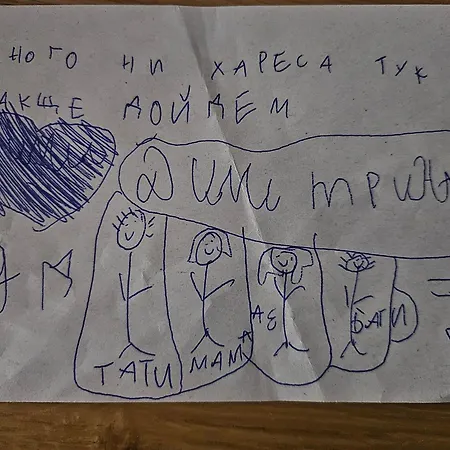 НОГО НИ ХАРЕСА ТУК
АКЩЕ ДОЙДЕМ
Димитрин
ТАТИ МАМА АЕ БАТИ